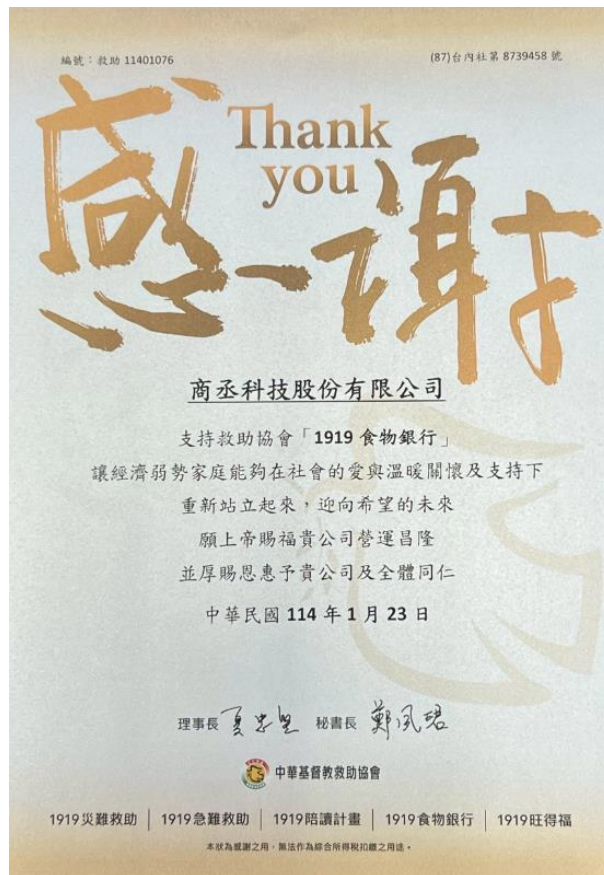 編號：救助 11401076
(87)台內社第 8739458 號
Thank
you
感謝
商丞科技股份有限公司
支持救助協會「1919 食物銀行」
讓經濟弱勢家庭能夠在社會的愛與溫暖關懷及支持下
重新站立起來，迎向希望的未來
願上帝賜福貴公司營運昌隆
並厚賜恩惠予貴公司及全體同仁
中華民國 114 年 1 月 23 日
理事長 夏忠堅 秘書長 鄭風珺
中華基督教救助協會
1919災難救助｜1919急難救助｜1919陪讀計畫｜1919食物銀行｜1919旺得福
本狀為感謝之用，無法作為綜合所得稅扣繳之用途。